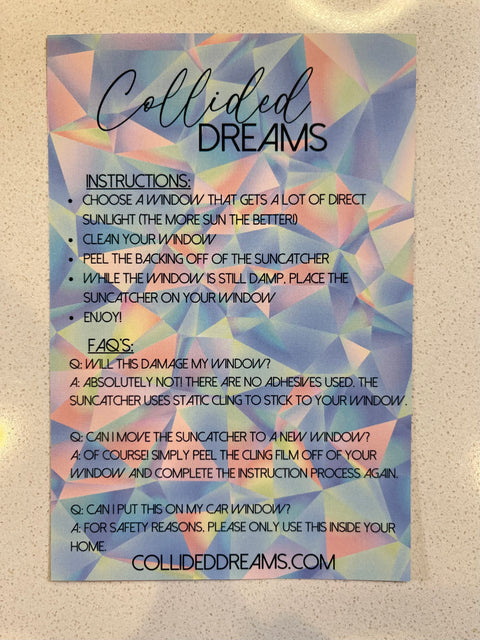 Collided
DREAMS
INSTRUCTIONS:
• CHOOSE A WINDOW THAT GETS A LOT OF DIRECT
SUNLIGHT (THE MORE SUN THE BETTER!)
• CLEAN YOUR WINDOW
• PEEL THE BACKING OFF OF THE SUNCATCHER
• WHILE THE WINDOW IS STILL DAMP, PLACE THE
SUNCATCHER ON YOUR WINDOW
• ENJOY!
FAQ'S:
Q: WILL THIS DAMAGE MY WINDOW?
A: ABSOLUTELY NOT! THERE ARE NO ADHESIVES USED, THE
SUNCATCHER USES STATIC CLING TO STICK TO YOUR WINDOW.
Q: CAN I MOVE THE SUNCATCHER TO A NEW WINDOW?
A: OF COURSE! SIMPLY PEEL THE CLING FILM OFF OF YOUR
WINDOW AND COMPLETE THE INSTRUCTION PROCESS AGAIN.
Q: CAN I PUT THIS ON MY CAR WINDOW?
A: FOR SAFETY REASONS, PLEASE ONLY USE THIS INSIDE YOUR
HOME.
COLLIDEDDREAMS.COM